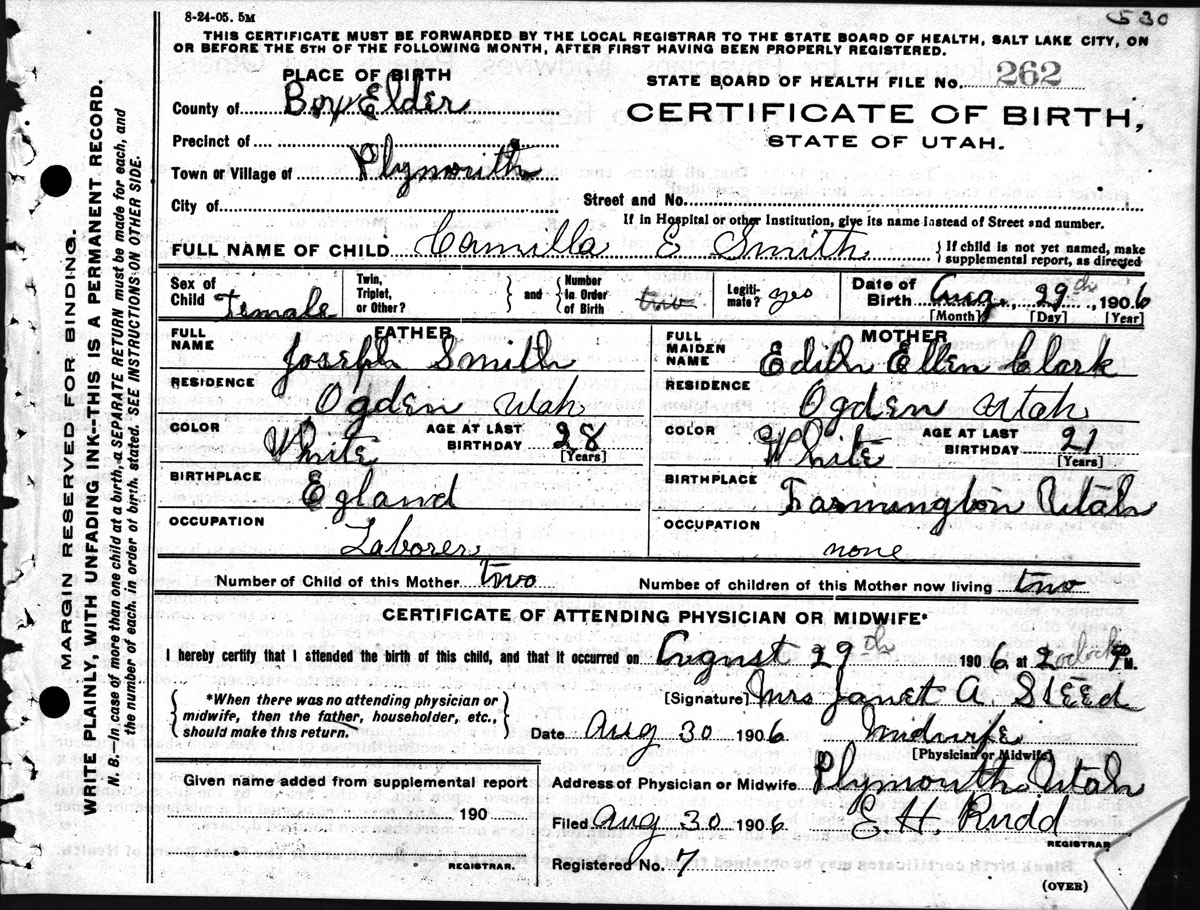 8-24-05. 5M
530
THIS CERTIFICATE MUST BE FORWARDED BY THE LOCAL REGISTRAR TO THE STATE BOARD OF HEALTH, SALT LAKE CITY, ON
OR BEFORE THE 5TH OF THE FOLLOWING MONTH, AFTER FIRST HAVING BEEN PROPERLY REGISTERED.
PLACE OF BIRTH
STATE BOARD OF HEALTH FILE No. 262
County of Box Elder
CERTIFICATE OF BIRTH,
STATE OF UTAH.
Precinct of
Town or Village of Plymouth
City of
Street and No.
If in Hospital or other Institution, give its name instead of Street and number.
FULL NAME OF CHILD Camilla E Smith { If child is not yet named, make
supplemental report, as directed
Sex of Child Female
Twin, Triplet, or Other? } and { Number in Order of Birth two
Legiti-mate? yes
Date of Birth Aug., 29th, 1906
[Month] [Day] [Year]
FATHER
FULL NAME Joseph Smith
RESIDENCE Ogden Utah
COLOR White AGE AT LAST BIRTHDAY 28
[Years]
BIRTHPLACE Egland
OCCUPATION Laborer
MOTHER
FULL MAIDEN NAME Edith Ellen Clark
RESIDENCE Ogden Utah
COLOR White AGE AT LAST BIRTHDAY 21
[Years]
BIRTHPLACE Farmington Utah
OCCUPATION none
Number of Child of this Mother two Number of children of this Mother now living two
CERTIFICATE OF ATTENDING PHYSICIAN OR MIDWIFE*
I hereby certify that I attended the birth of this child, and that it occurred on August 29th 1906 at 2 oclock P M.
{ *When there was no attending physician or
midwife, then the father, householder, etc.,
should make this return. }
[Signature] Mrs Janet A. Steed
Date Aug 30 1906 Midwife
[Physician or Midwife]
Given name added from supplemental report
190
REGISTRAR.
Address of Physician or Midwife Plymouth Utah
Filed Aug 30 1906 E. H. Rudd
REGISTRAR
Registered No. 7
(OVER)
MARGIN RESERVED FOR BINDING.
WRITE PLAINLY, WITH UNFADING INK--THIS IS A PERMANENT RECORD.
N. B.—In case of more than one child at a birth, a SEPARATE RETURN must be made for each, and
the number of each, in order of birth, stated. SEE INSTRUCTIONS ON OTHER SIDE.